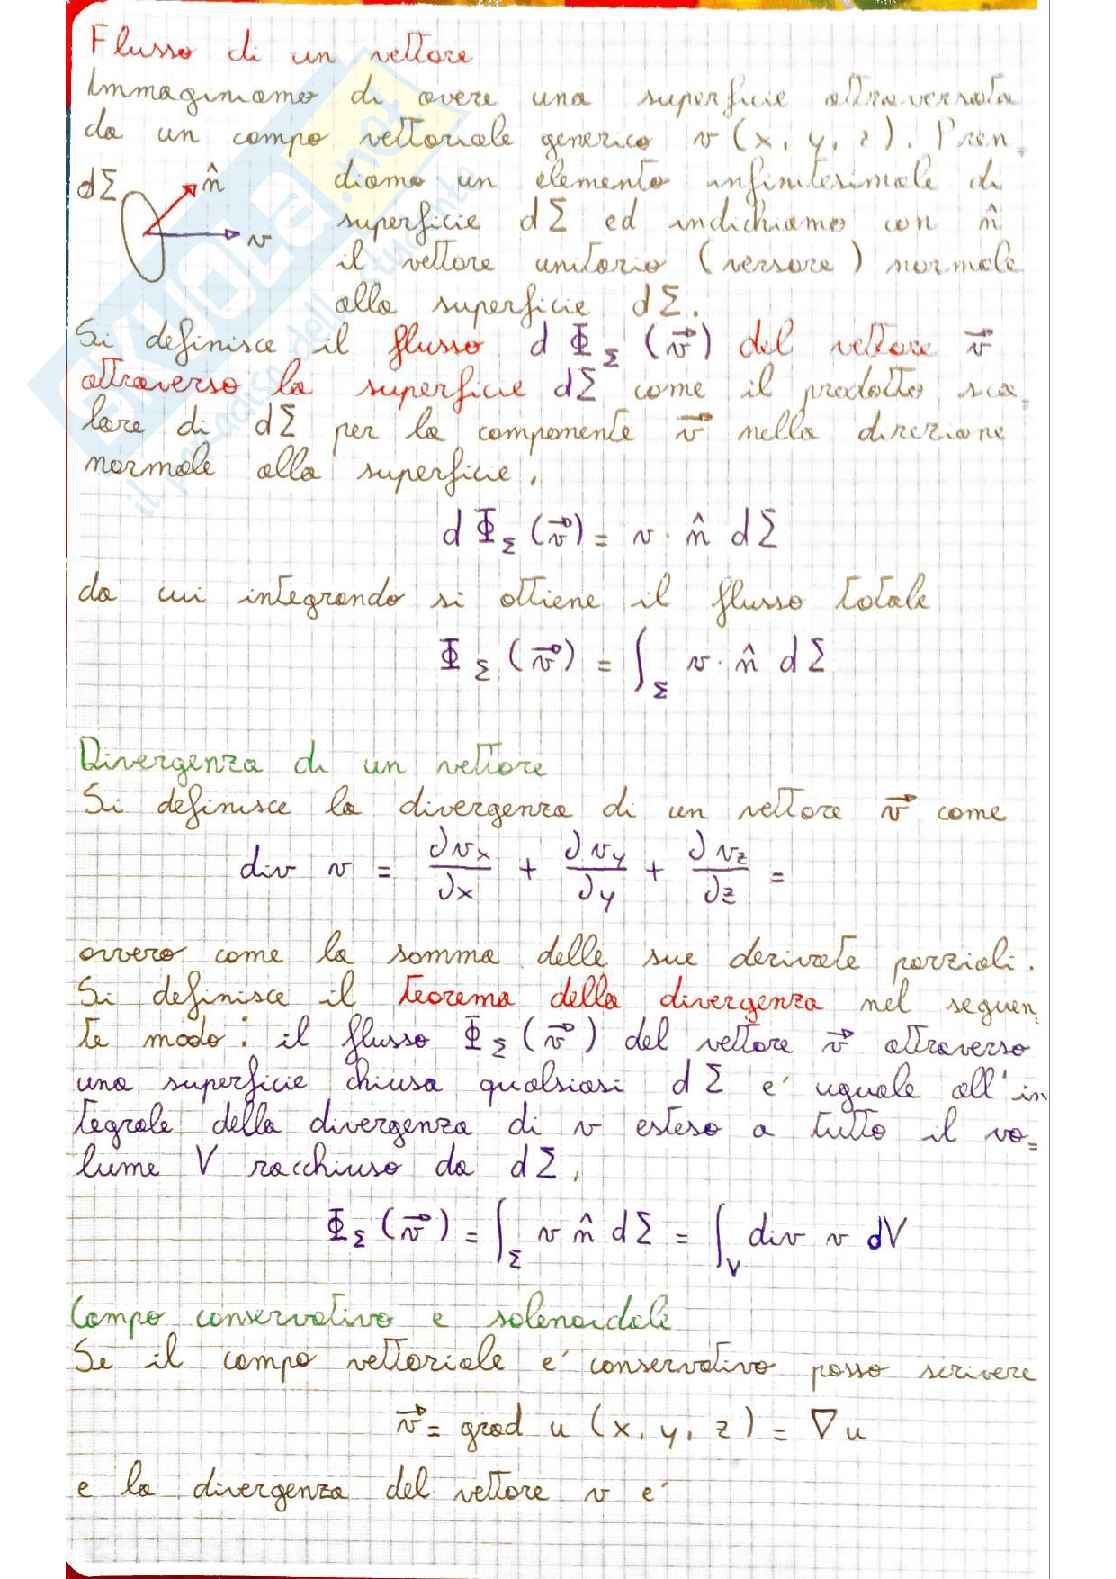 Flusso di un vettore
Immaginiamo di avere una superficie attraversata
da un campo vettoriale generico v (x, y, z). Pren
dΣ n̂ diamo un elemento infinitesimale di
superficie dΣ ed indichiamo con n̂
v il vettore unitario (versore) normale
alla superficie dΣ.
Si definisce il flusso d Φ_Σ (v⃗) del vettore v⃗
attraverso la superficie dΣ come il prodotto sca
lare di dΣ per la componente v⃗ nella direzione
normale alla superficie.
d Φ_Σ (v⃗) = v · n̂ dΣ
da cui integrando si ottiene il flusso totale
Φ_Σ (v⃗) = ∫_Σ v · n̂ dΣ
Divergenza di un vettore
Si definisce la divergenza di un vettore v⃗ come
div v = ∂vx/∂x + ∂vy/∂y + ∂vz/∂z =
ovvero come la somma delle sue derivate parziali.
Si definisce il teorema della divergenza nel seguen
te modo: il flusso Φ_Σ (v⃗) del vettore v⃗ attraverso
una superficie chiusa qualsiasi dΣ e' uguale all'in
tegrale della divergenza di v esteso a tutto il vo=
lume V racchiuso da dΣ.
Φ_Σ (v⃗) = ∫_Σ v n̂ dΣ = ∫_V div v dV
Campo conservativo e solenoidale
Se il campo vettoriale e' conservativo posso scrivere
v⃗ = grad u (x, y, z) = ∇u
e la divergenza del vettore v e'